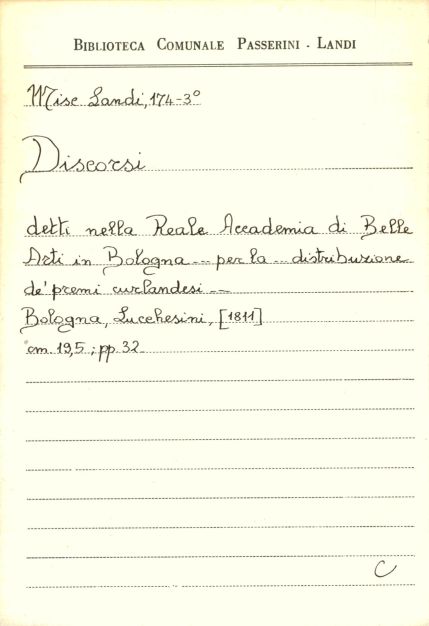 BIBLIOTECA COMUNALE PASSERINI - LANDI
Misc Landi, 174-3°
Discorsi
detti nella Reale Accademia di Belle
Arti in Bologna ... per la ... distribuzione
de' premi curlandesi ...
Bologna, Lucchesini, [1811]
cm. 19,5 ; pp. 32
C